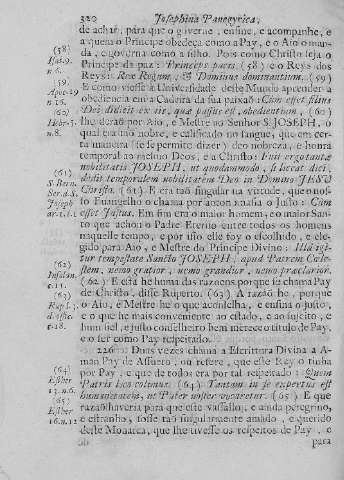 320 Josephina Panegyrica,
de achar, para que o governe, ensine, e acompanhe, e
a quem o Principe obedeça como a Pay, e o Aio o man-
da, e governa como a filho. Pois como Christo seja o
Principe da paz: Princeps pacis (58) e o Reys dos
Reys: Rex Regum, & Dominus dominantium. (59)
E como viesse à Universidade deste Mundo aprender a
obediencia em a Cadeira da sua paixaõ: Cum esset filius
Dei didicit ex iis, quæ passus est, obedientiam, (60)
lhe deraõ por Aio, e Mestre ao Senhor S. JOSEPH, o
qual era taõ nobre, e calificado no sangue, que em cer-
ta maneira (se se permite dizer) deo nobreza, e honra
temporal ao mesmo Deos, e a Christo: Fuit ergo tantæ
nobilitatis JOSEPH, ut quodammodo, si liceat dici,
dedit temporalem nobilitatem Deo in Domino JESU
Christo. (61) E era taõ singular na virtude, que no San-
to Euangelho o chama por antonomasia o Justo: Cum
esset Justus. Em fim era o maior homem, e o maior San-
to que achou o Padre Eterno entre todos os homens
naquelle tempo, e por isso elle foy o escolhido, e ele-
gido para Aio, e Mestre da Principe Divino: Illa igi-
tur tempestate Sancto JOSEPH, apud Patrem Cœle-
stem, nemo gratior, nemo grandior, nemo præclarior.
(62) E esta he huma das razoens porque se chama Pay
de Christo, disse Ruperto. (63) A razaõ he, porque
o Aio, e Mestre he o que aconselha, e ensina o justo,
e o que he mais conveniente ao estado, e ao sujeito, e
hum fiel, e justo conselheiro bem merece o titulo de Pay,
e o ser como Pay respeitado.
226 Duas vezes chama a Escrittura Divina a A-
man Pay de Assuero, ou refere, que este Rey o tinha
por Pay, e que de todos era por tal respeitado: Quem
Patris loco colimus. (64) Tantam in se expertus est
humanitatem, ut Pater noster vocaretur. (65) E que
razaõ haveria para que este vassallo, e ainda peregrino,
e estranho, fosse taõ singularmente amado, e querido
deste Monarca, que lhe tivesse os respeitos de Pay, e
para
(58)
Isai. 9.
n. 6.
(59)
Apoc. 19
n. 16.
(60)
Hebr. 5.
n. 8.
(61)
S. Bern.
Ser. d. S.
Joseph
(62)
Insolan.
c. 11.
(63)
Rup. l.
d. offic.
c. 18.
(64)
Esther
13. n. 6.
(65)
Esther
16. n. 11